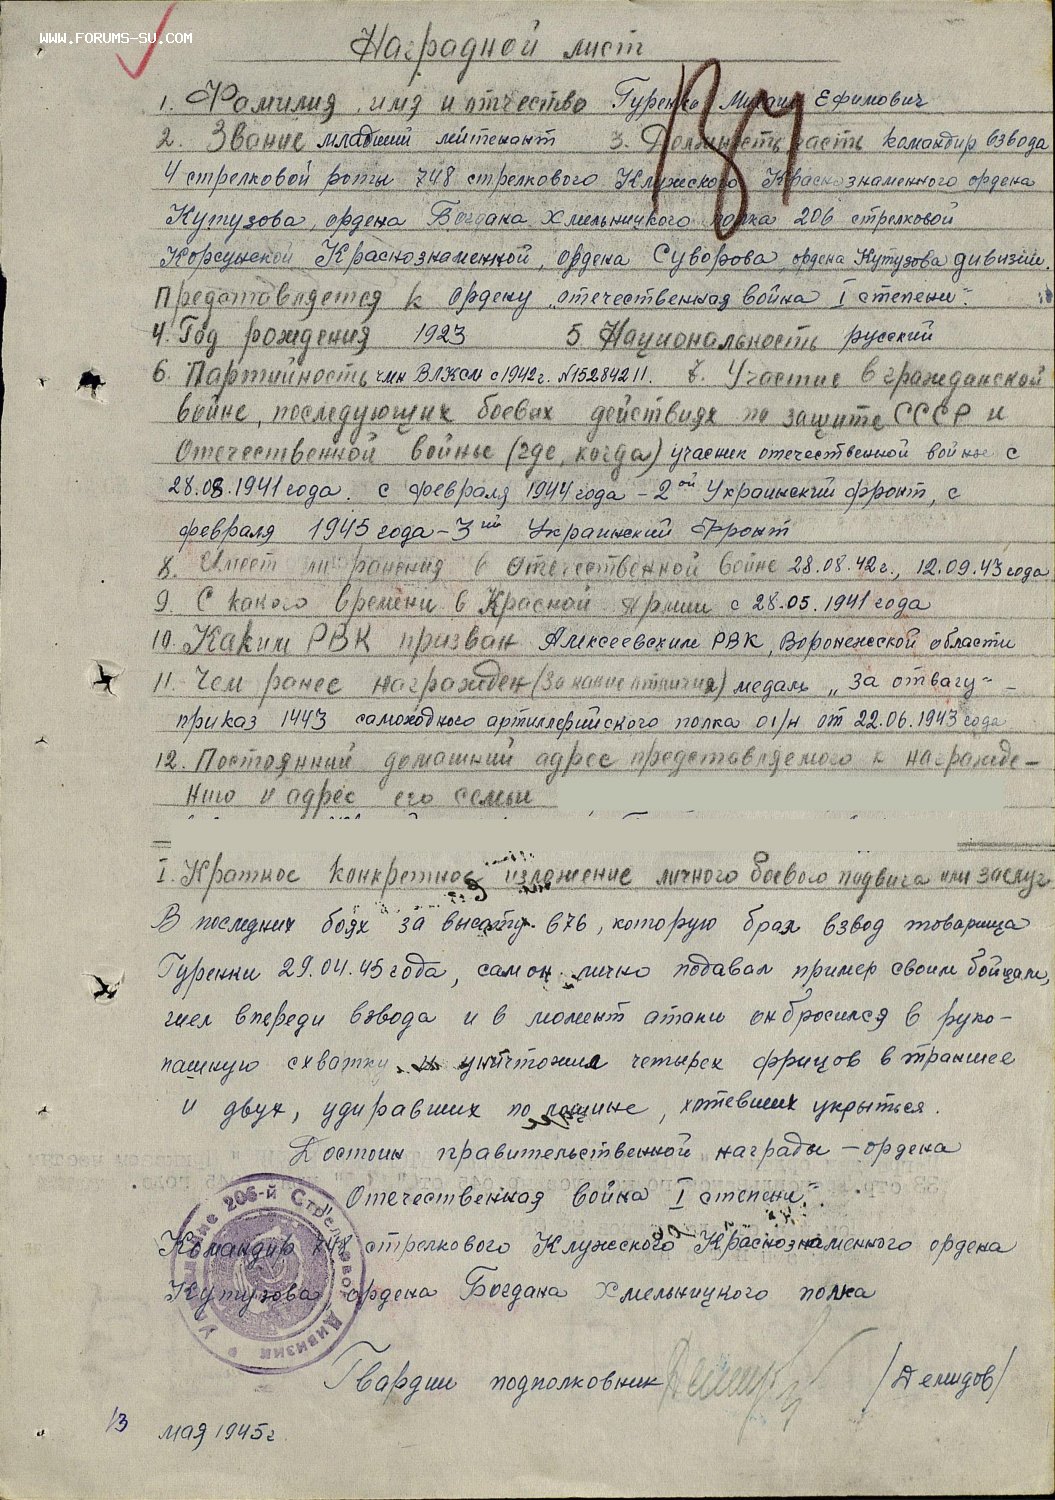 WWW.FORUMS-SU.COM
Наградной лист
1. Фамилия, имя и отчество Гуренко Михаил Ефимович
2. Звание младший лейтенант 3. Должность, часть командир взвода
4 стрелковой роты 748 стрелкового Клужского Краснознаменного ордена
Кутузова, ордена Богдана Хмельницкого полка 206 стрелковой
Корсунской Краснознаменной, ордена Суворова, ордена Кутузова дивизии.
Представляется к ордену „отечественная война I степени".
4. Год рождения 1923 5. Национальность русский
6. Партийность член ВЛКСМ с 1942 г. №15284211. 7. Участие в гражданской
войне, последующих боевых действиях по защите СССР и
Отечественной войны (где, когда) участник отечественной войны с
28.08.1941 года. с февраля 1944 года – 2ой Украинский фронт, с
февраля 1945 года – 3ий Украинский Фронт
8. Имеет ли ранения в Отечественной войне 28.08.42 г., 12.09.43 года
9. С какого времени в Красной Армии с 28.05.1941 года
10. Каким РВК призван Алексеевским РВК, Воронежской области
11. Чем ранее награжден (за какие отличия) медаль „За отвагу" –
приказ 1443 самоходного артиллерийского полка о/н от 22.06.1943 года
12. Постоянный домашний адрес представляемого к награжде-
нию и адрес его семьи
I. Краткое конкретное изложение личного боевого подвига или заслуг
В последних боях за высоту 676, которую брал взвод товарища
Гуренки 29.04.45 года, сам он лично подавал пример своим бойцам,
шел впереди взвода и в момент атаки он бросился в руко-
пашную схватку и уничтожил четырех фрицов в траншее
и двух, удиравших по лощине, хотевших укрыться.
Достоин правительственной награды – ордена
„Отечественная война I степени".
Командир 748 стрелкового Клужского Краснознаменного ордена
Кутузова, ордена Богдана Хмельницкого полка
Гвардии подполковник /Демидов/
13 мая 1945 г.
Управление 206-й Стрелковой Дивизии